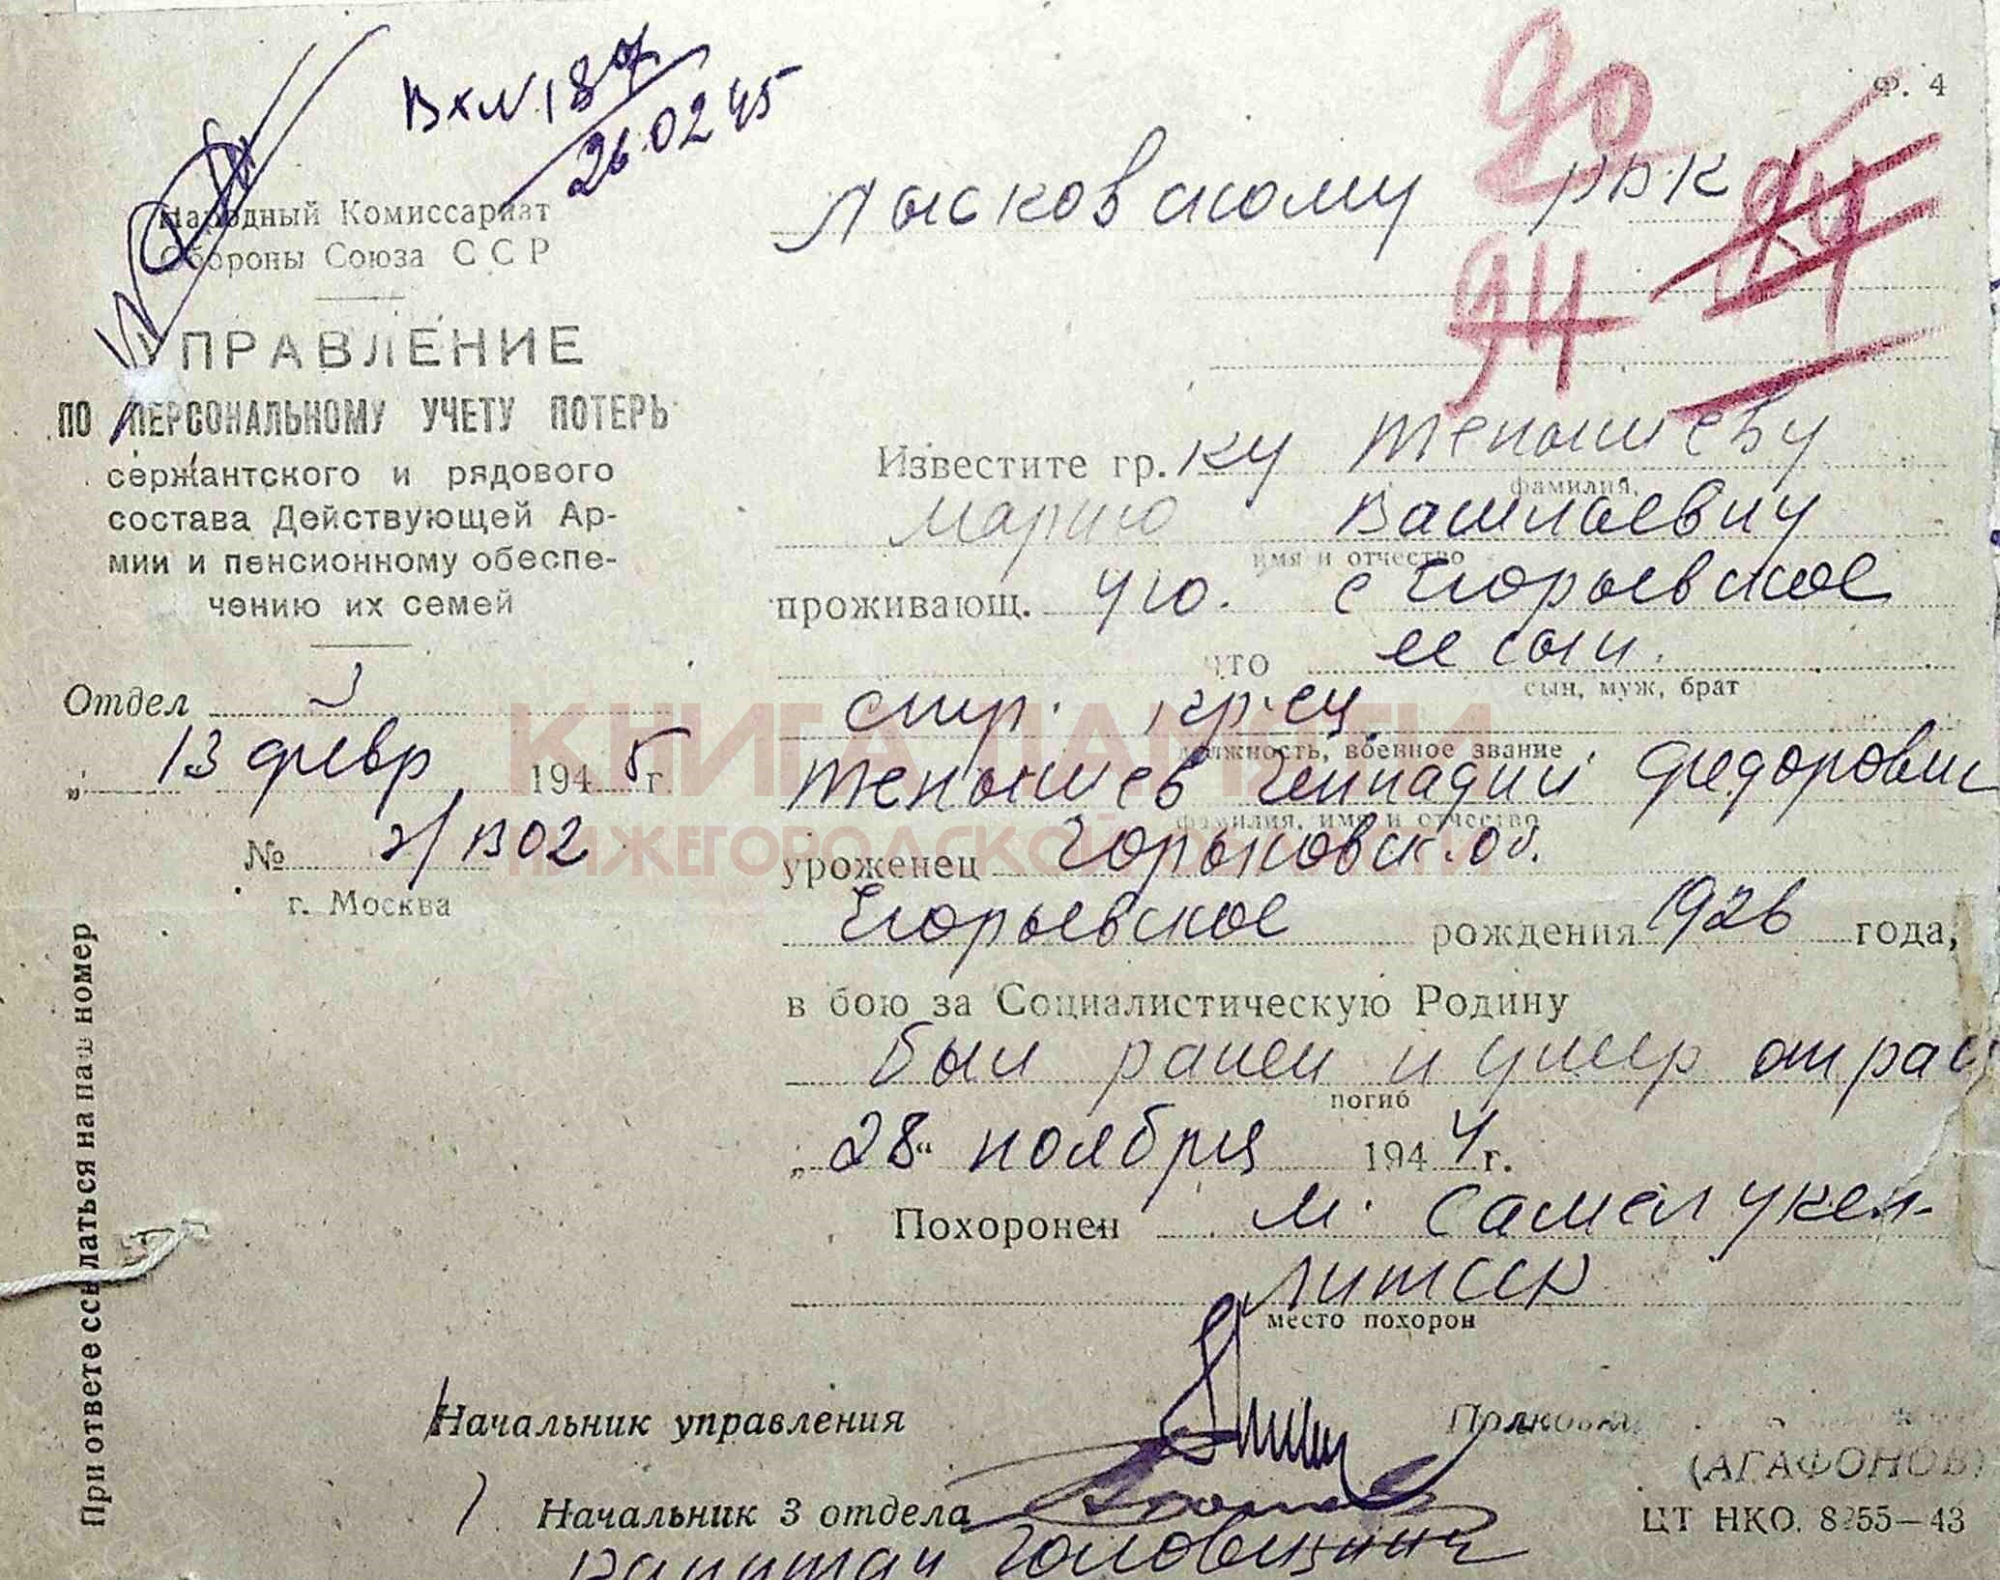 Вх N 187
26.02 45
Ф. 4
90
94
Народный Комиссариат
Обороны Союза ССР
УПРАВЛЕНИЕ
ПО ПЕРСОНАЛЬНОМУ УЧЕТУ ПОТЕРЬ
сержантского и рядового
состава Действующей Ар-
мии и пенсионному обеспе-
чению их семей
Отдел 3
„ 13 февр 1945 г.
№ 2/1302
г. Москва
При ответе ссылаться на наш номер
Лысковскому РВК
Известите гр.ку Тенышеву
фамилия,
Марию Васильевну
имя и отчество
проживающ. ч/о. с Егорьевское
что ее сын.
сын, муж, брат
стр. кр-ец
должность, военное звание
Тенышев Геннадий Федорович
фамилия, имя и отчество
уроженец Горьковск. об.
Егорьевское рождения 1926 года,
в бою за Социалистическую Родину
был ранен и умер от ран
погиб
„ 28 “ ноября 1944 г.
Похоронен м. Самелукен-
ЛитССР
место похорон
Начальник управления
Полковник
(АГАФОНОВ)
Начальник 3 отдела
капитан Головщинин
ЦТ НКО. 8255—43
КНИГА ПАМЯТИ
НИЖЕГОРОДСКОЙ ОБЛАСТИ